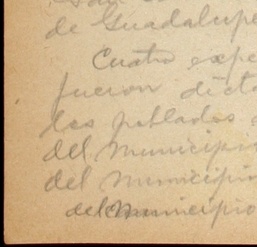 de Guadalupe
Cuatro expe
fueron dicta
los poblados
del Municipio
del Municipio
del Municipio